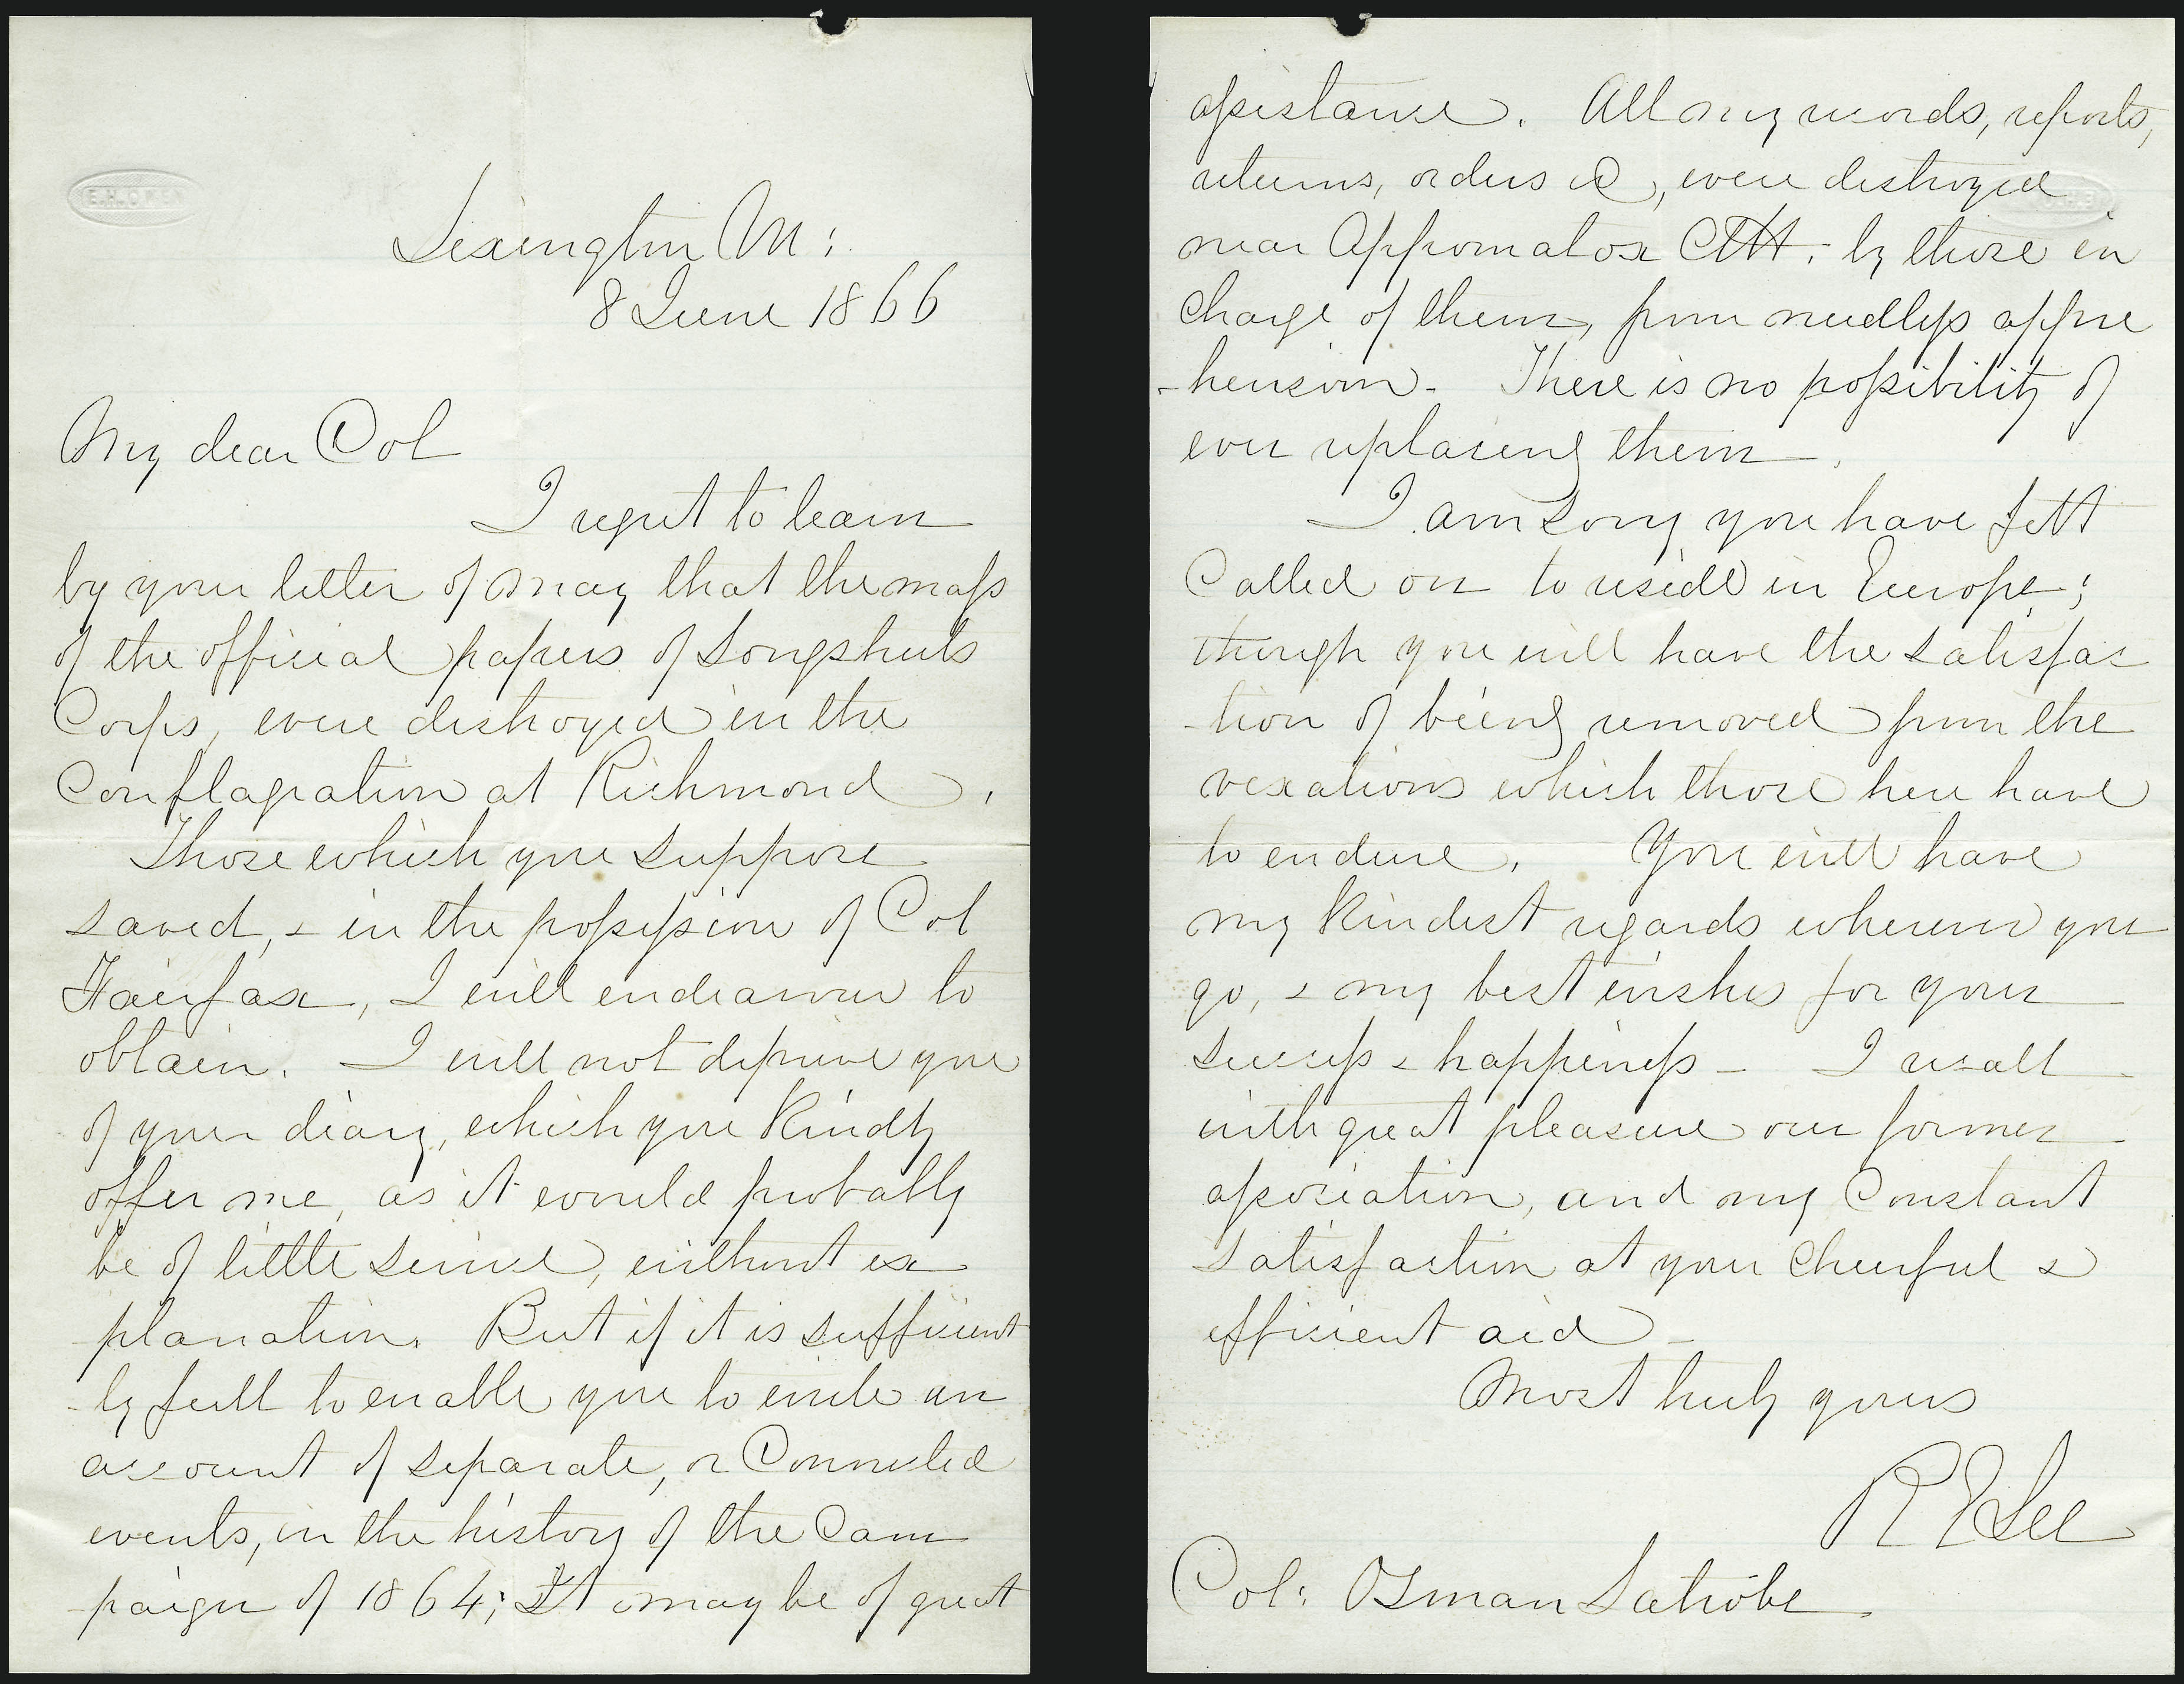 E.H.OWEN
Lexington Va:
8 June 1866
My dear Col
I regret to learn
by your letter of May that the mass
of the official papers of Longstreets
Corps, were destroyed in the
Conflagration at Richmond.
Those which you suppose
saved, & in the possession of Col
Fairfax, I will endeavour to
obtain. I will not deprive you
of your diary, which you kindly
offer me, as it would probably
be of little service, without ex
planation. But if it is sufficient
-ly full to enable you to write an
account of separate, or connected
events, in the history of the Cam
paign of 1864; It may be of great
assistance. All my records, reports,
returns, orders &c, were destroyed
near Appomatox CtH. by those in
charge of them, from needless appre
-hension. There is no possibility of
ever replacing them.
I am sorry you have felt
called on to reside in Europe;
though you will have the satisfac
-tion of being removed from the
vexations which those here have
to endure. You will have
my kindest regards wherever you
go, & my best wishes for your
success & happiness - I recall
with great pleasure our former
association, and my constant
satisfaction at your cheerful &
efficient aid -
Most truly yours
R E Lee
Col: Osman Latrobe